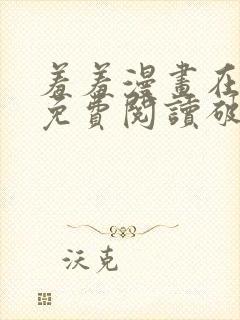 羞羞漫畫在
免費閱讀破
沃克